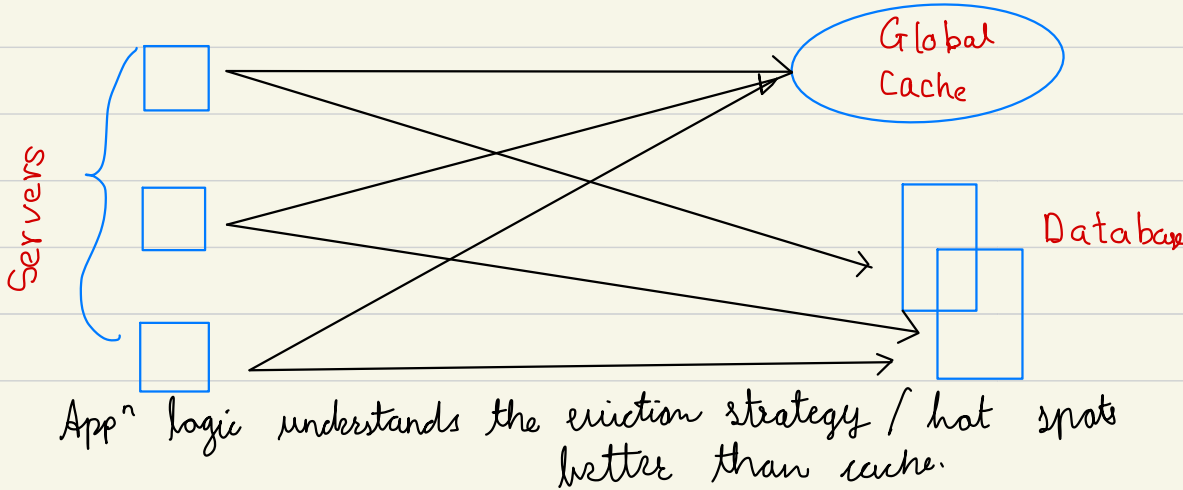 Global
Cache
Servers
Database
Appⁿ logic understands the eviction strategy / hot spots
better than cache.